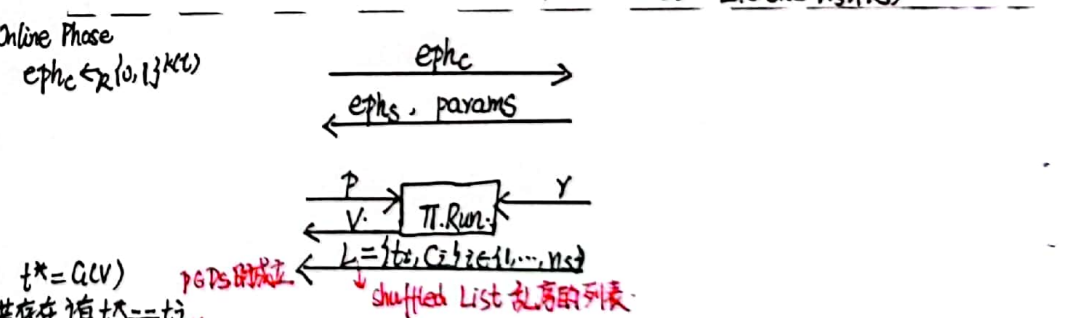 Online Phase
eph_c ←_R {0,1}^{k(t)}
eph_c
eph_s, params
P
Y
V.
Π.Run.
L={t_i, C_i} i∈{1,...,n_s}
t*=G(V)
shuffled List 乱序的列表.